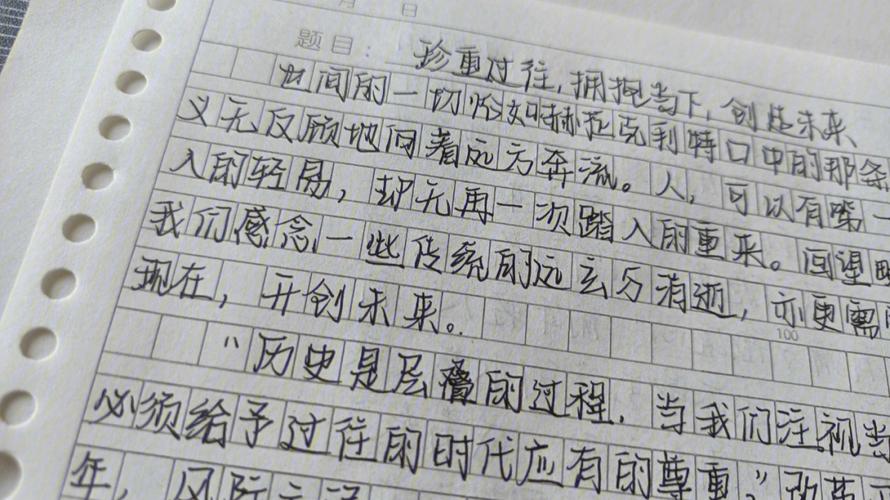 月 日
题目： 珍重过往，拥抱当下，创造未来
世间的一切恰如赫拉克利特口中的那条
义无反顾地向着远方奔流。人，可以有第一
入的轻易，却无再一次踏入的重来。回望
我们感念一些传统的远去与消逝，亦更需
现在，开创未来。
100
“历史是层叠的过程，当我们注视当
必须给予过往的时代应有的尊重。”
年，风际